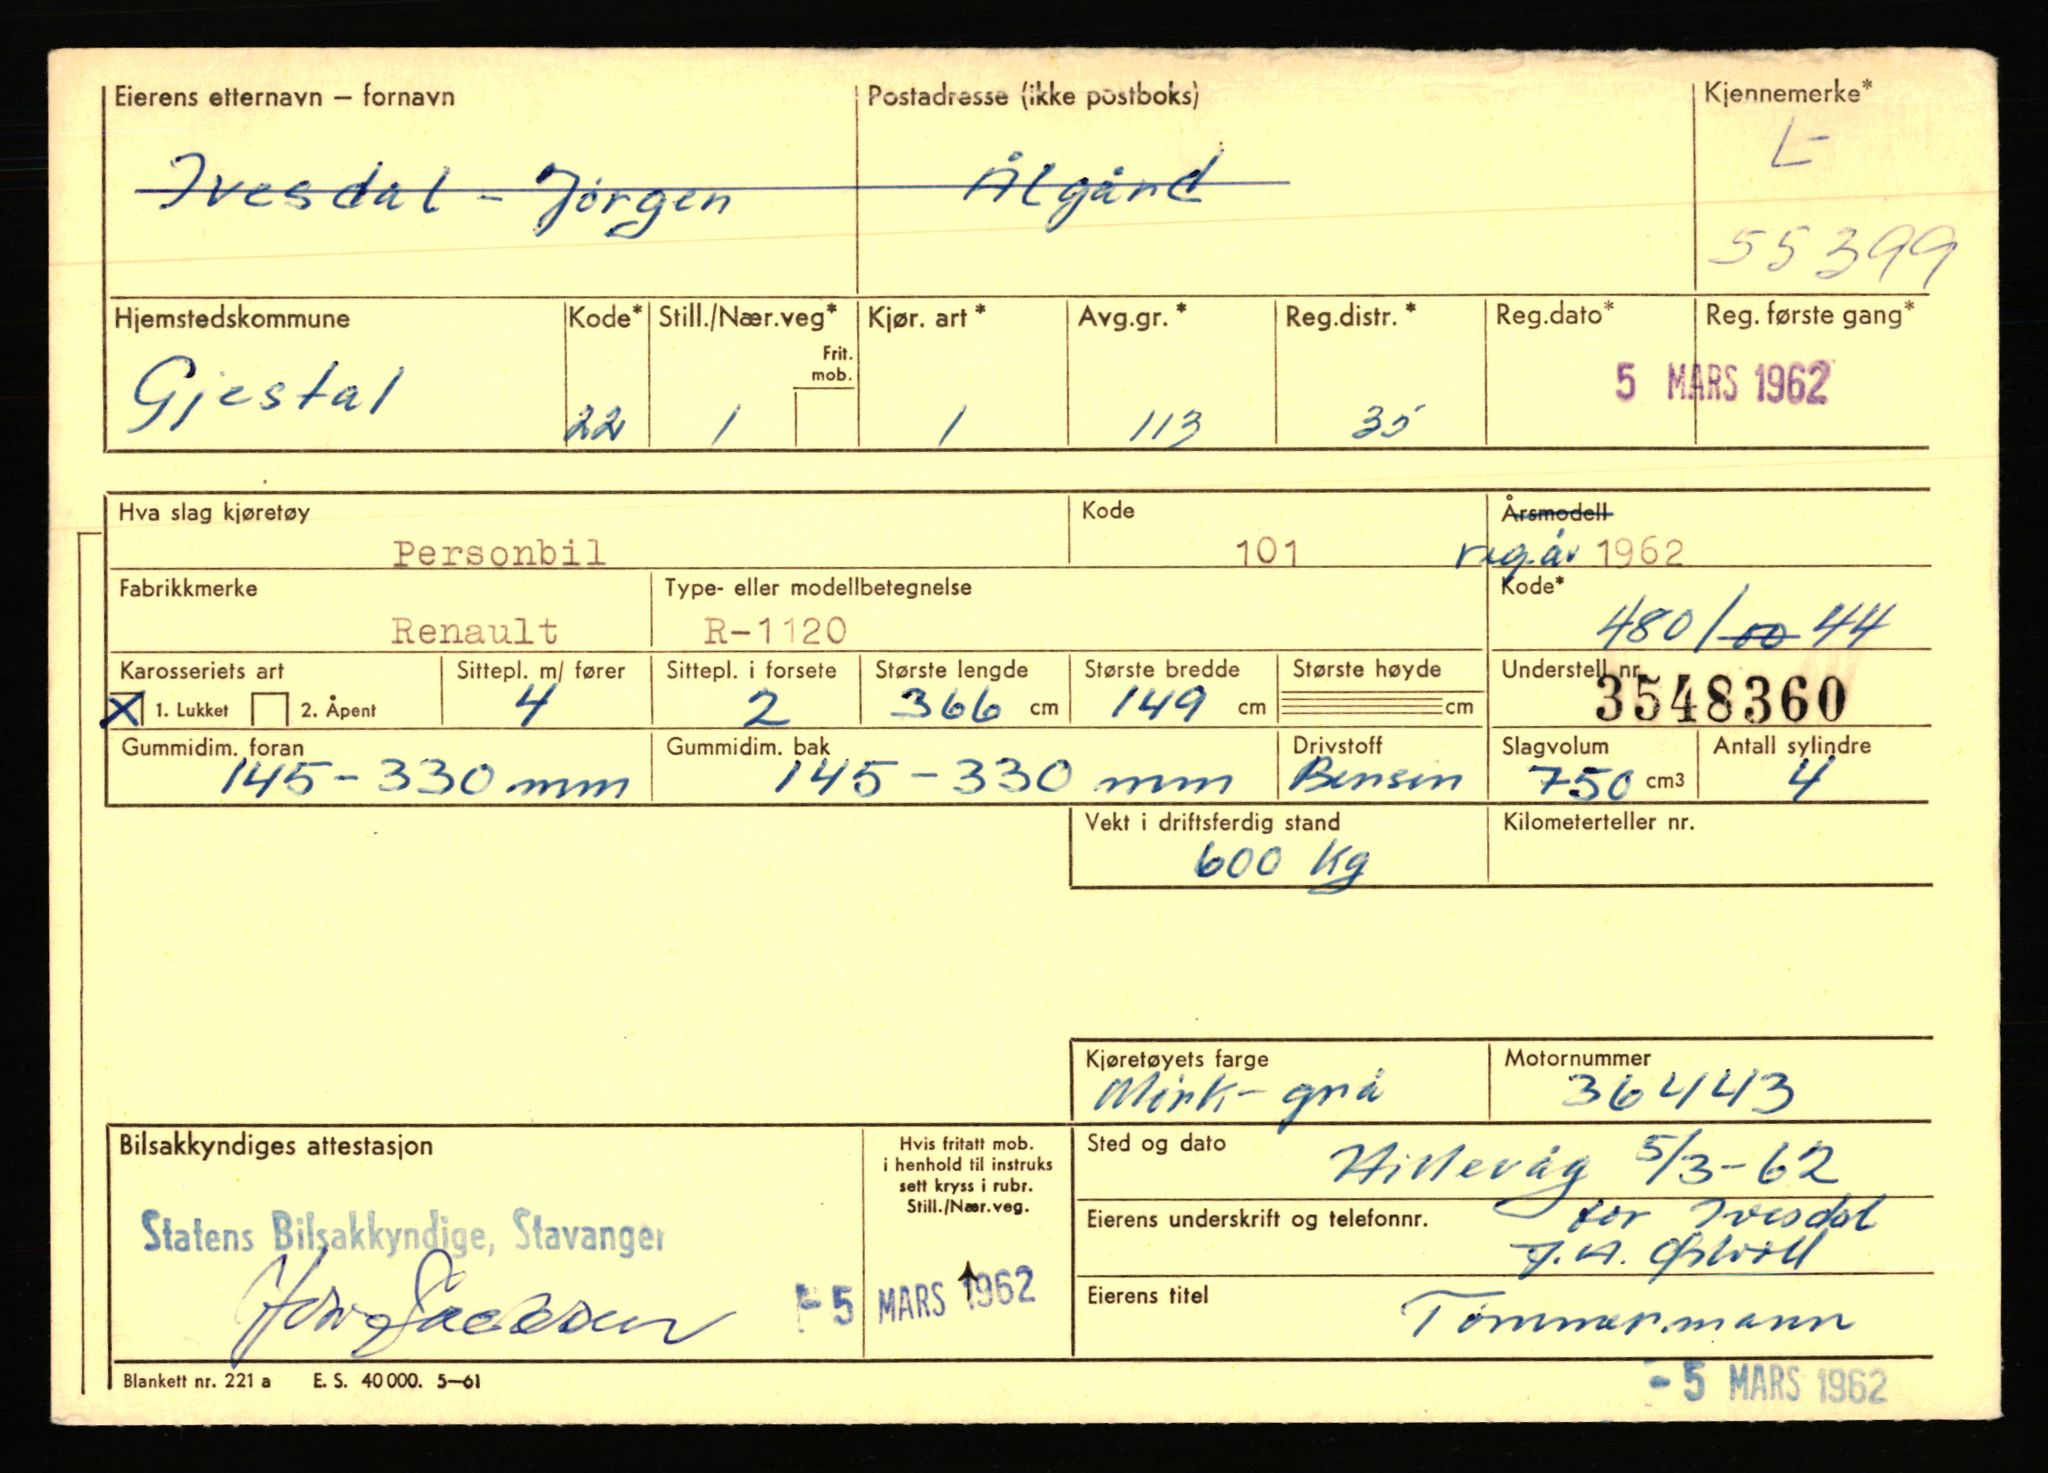 Eierens etternavn – fornavn Postadresse (ikke postboks) Kjennemerke*
L-
Ivesdal - Jørgen Ålgård
55399
Hjemstedskommune Kode* Still./Nær.veg* Kjør. art* Avg.gr.* Reg.distr.* Reg.dato* Reg. første gang*
Frit.
mob.
Gjestal 22 1 1 113 35 5 MARS 1962
Hva slag kjøretøy Kode Årsmodell
Personbil 101 reg.år 1962
Fabrikkmerke Type- eller modellbetegnelse Kode*
Renault R-1120 480/00 44
Karosseriets art Sittepl. m/ fører Sittepl. i forsete Største lengde Største bredde Største høyde Understell nr.
X 1. Lukket 2. Åpent 4 2 366 cm 149 cm cm 3548360
Gummidim. foran Gummidim. bak Drivstoff Slagvolum Antall sylindre
145-330 mm 145-330 mm Bensin 750 cm3 4
Vekt i driftsferdig stand Kilometerteller nr.
600 kg
Kjøretøyets farge Motornummer
Mørk-grå 36443
Bilsakkyndiges attestasjon Hvis fritatt mob.
i henhold til instruks
sett kryss i rubr.
Still./Nær.veg.
Sted og dato Hillevåg 5/3-62
Statens Bilsakkyndige, Stavanger
- 5 MARS 1962
Eierens underskrift og telefonnr. for Ivesdal
J.A.
Eierens titel Tømmermann
Blankett nr. 221 a E. S. 40 000. 5–61
- 5 MARS 1962